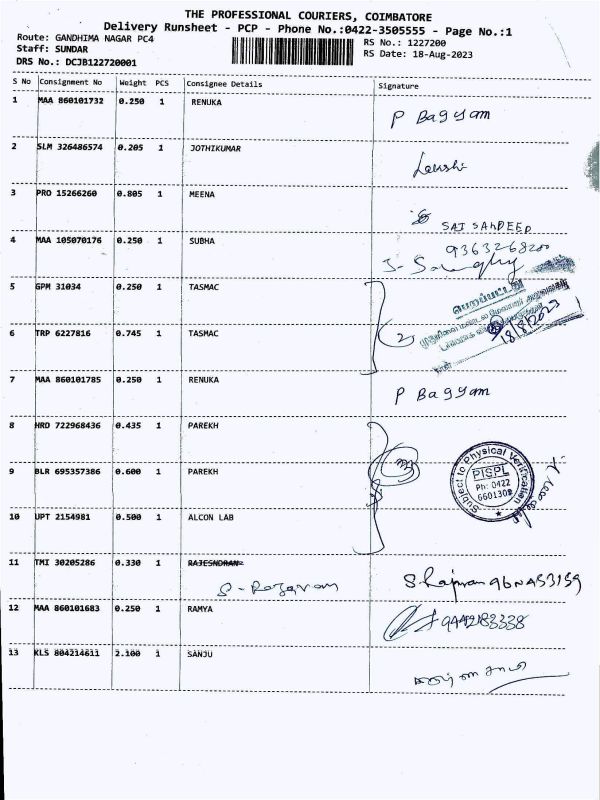 THE PROFESSIONAL COURIERS, COIMBATORE
Delivery Runsheet - PCP - Phone No.:0422-3505555 - Page No.:1
Route: GANDHIMA NAGAR PC4
RS No.: 1227200
Staff: SUNDAR
RS Date: 18-Aug-2023
DRS No.: DCJB122720001
S No Consignment No Weight PCS Consignee Details Signature
1 MAA 860101732 0.250 1 RENUKA
P Bagyam
2 SLM 326486574 0.205 1 JOTHIKUMAR
3 PRO 15266260 0.805 1 MEENA
SAI SANDEEP
4 MAA 105070176 0.250 1 SUBHA
9363268200
5 GPM 31034 0.250 1 TASMAC
பெறப்பட்டது
18/8/2023
6 TRP 6227816 0.745 1 TASMAC
2
7 MAA 860101785 0.250 1 RENUKA
P Bagyam
8 HRD 722968436 0.435 1 PAREKH
Subject to Physical Verification
PISPL
Ph: 0422
6601308
9 BLR 695357386 0.600 1 PAREKH
10 UPT 2154981 0.500 1 ALCON LAB
11 TMI 30205286 0.330 1 RAJESNDRAN
12 MAA 860101683 0.250 1 RAMYA
9442183338
13 KLS 804214611 2.100 1 SANJU